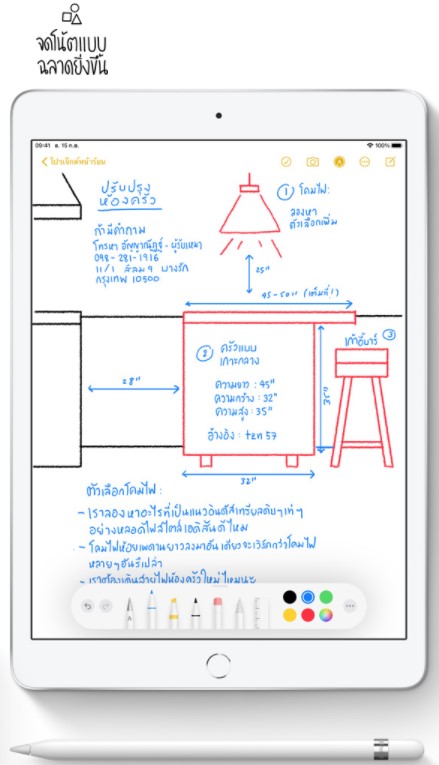 จดโน้ตแบบ
ฉลาดยิ่งขึ้น
09:41 อ. 15 ก.ย.
100%
โปรเจ็กต์หน้าร้อน
ปรับปรุง
ห้องครัว
ถ้ามีคำถาม
โทรหา อัญญาณัฏฐ์ - ผู้รับเหมา
098-281-1916
11/1 สีลม 9 บางรัก
กรุงเทพ 10500
1 โคมไฟ:
ลองหา
ตัวเลือกเพิ่ม
25"
45-50" (เต็มที่!)
2 ครัวแบบ
เกาะกลาง
ความยาว : 45"
ความกว้าง : 32"
ความสูง : 35"
อ้างอิง : tzn 57
28"
35"
เก้าอี้บาร์ 3
32"
ตัวเลือกโคมไฟ :
- เราลองหาอะไรที่เป็นแนวอินดัสเทรียลดิบๆ เท่ๆ
อย่างหลอดไฟสไตล์เอดิสันดีไหม
- โคมไฟห้อยเพดานยาวลงมาอันเดียวจะเวิร์คกว่าโคมไฟ
หลายๆ อันรึเปล่า
- เราต้องเดินสายไฟห้องครัวใหม่ไหมนะ